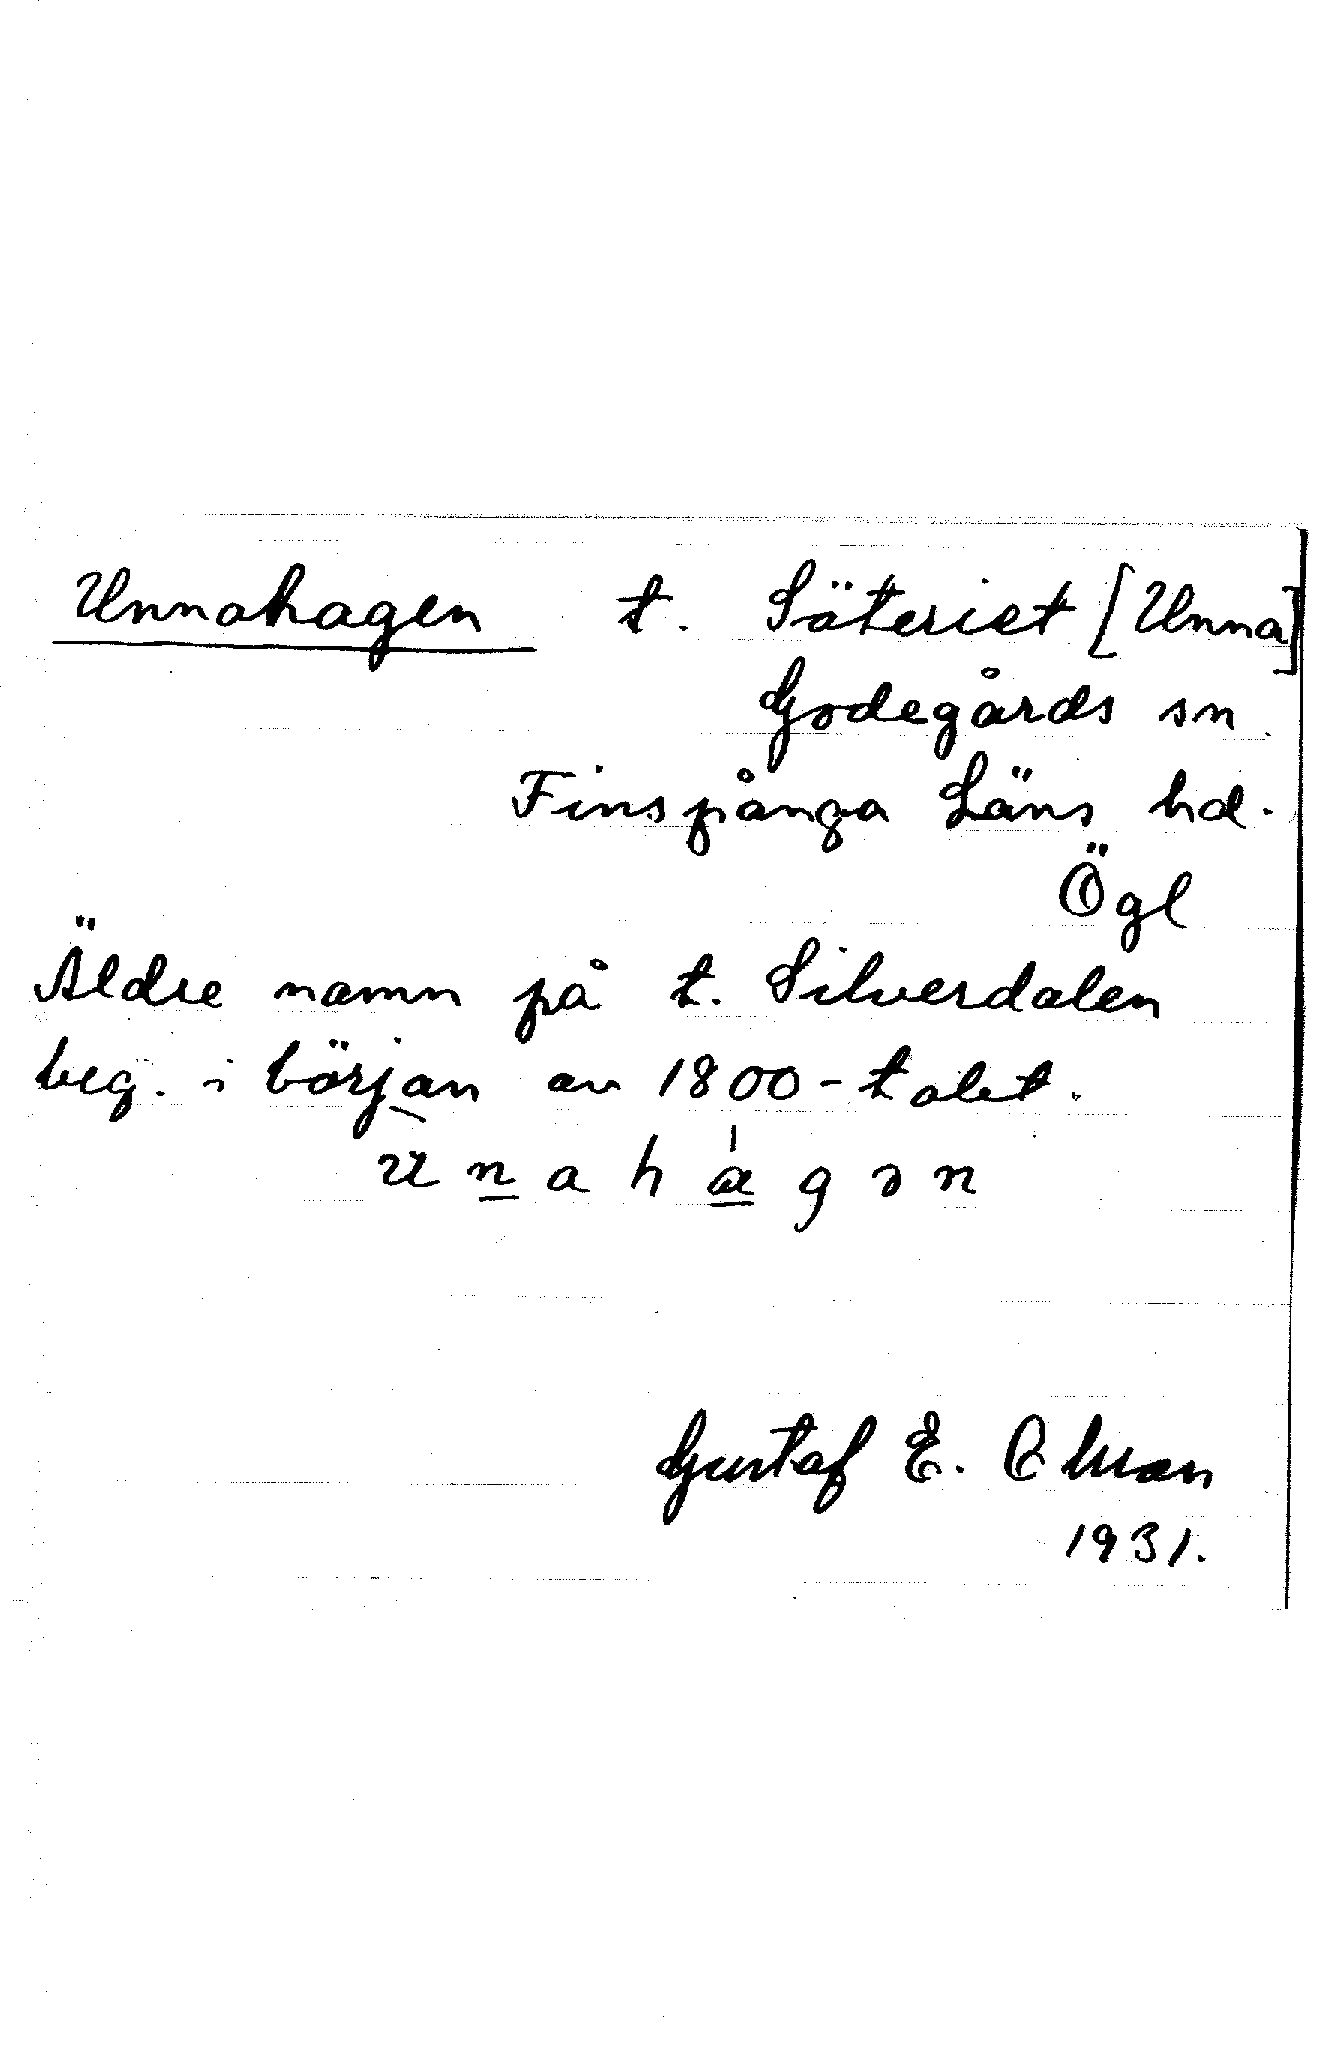 Unnahagen t. Säteriet [Unna]
Godegårds sn.
Finspånga Läns hd.
Ögl
Äldre namn på t. Silverdalen
beg. i början av 1800-talet.
ùn̲ahá̲gən
Gustaf E.
1931.